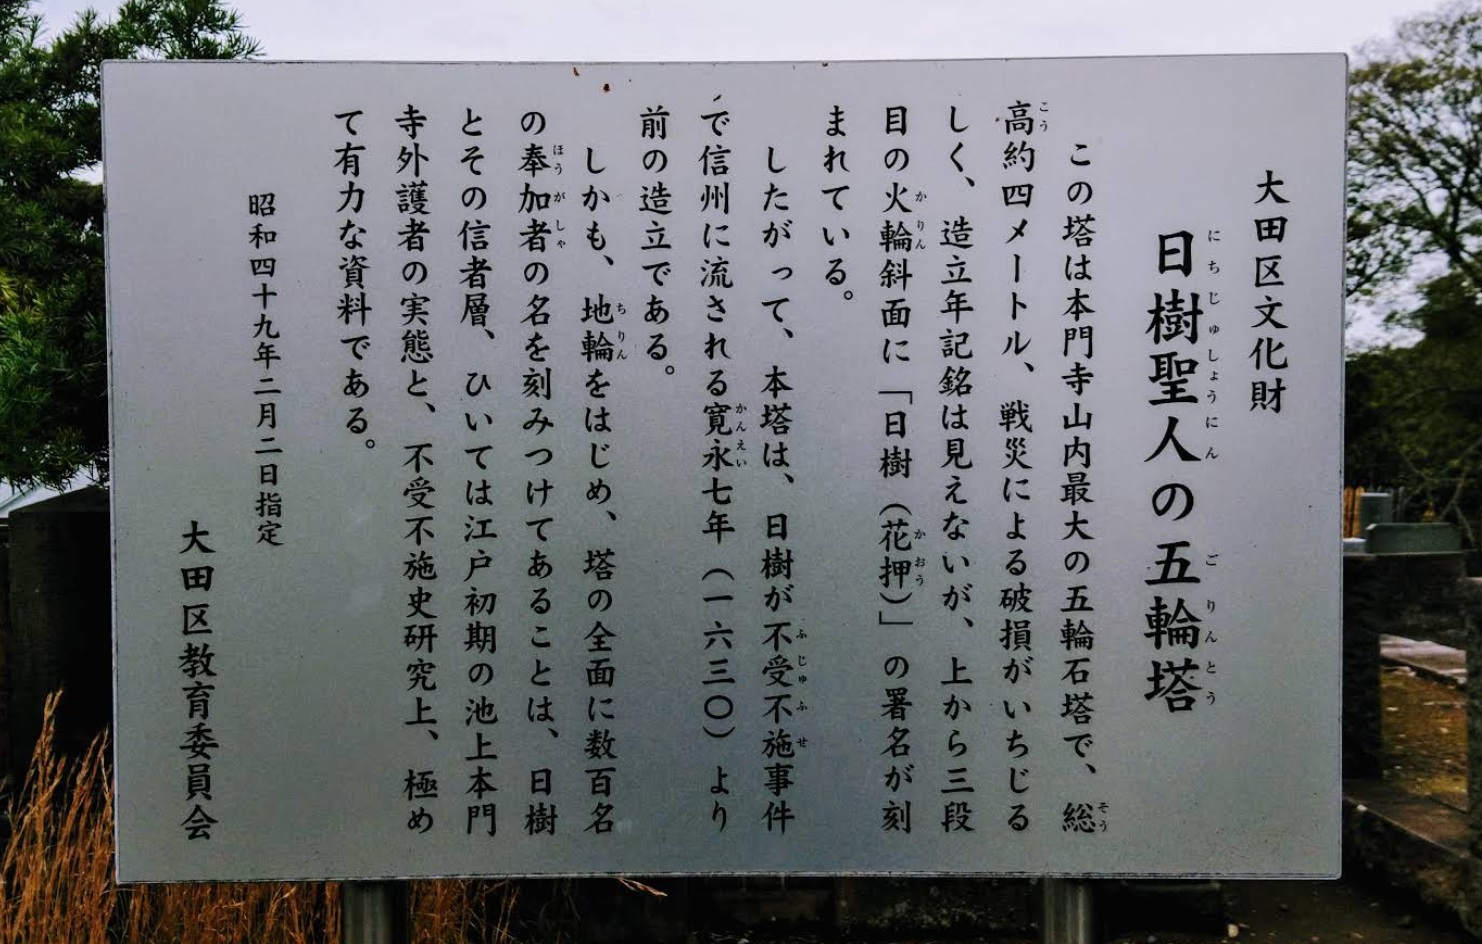 大田区文化財
日樹聖人の五輪塔
にちじゅしょうにん ごりんとう
この塔は本門寺山内最大の五輪石塔で、総
そう
高約四メートル、戦災による破損がいちじる
こう
しく、造立年記銘は見えないが、上から三段
目の火輪斜面に「日樹（花押）」の署名が刻
かりん かおう
まれている。
したがって、本塔は、日樹が不受不施事件
ふじゅふせ
で信州に流される寛永七年（一六三〇）より
かんえい
前の造立である。
しかも、地輪をはじめ、塔の全面に数百名
ちりん
の奉加者の名を刻みつけてあることは、日樹
ほうがしゃ
とその信者層、ひいては江戸初期の池上本門
寺外護者の実態と、不受不施史研究上、極め
て有力な資料である。
昭和四十九年二月二日指定
大田区教育委員会